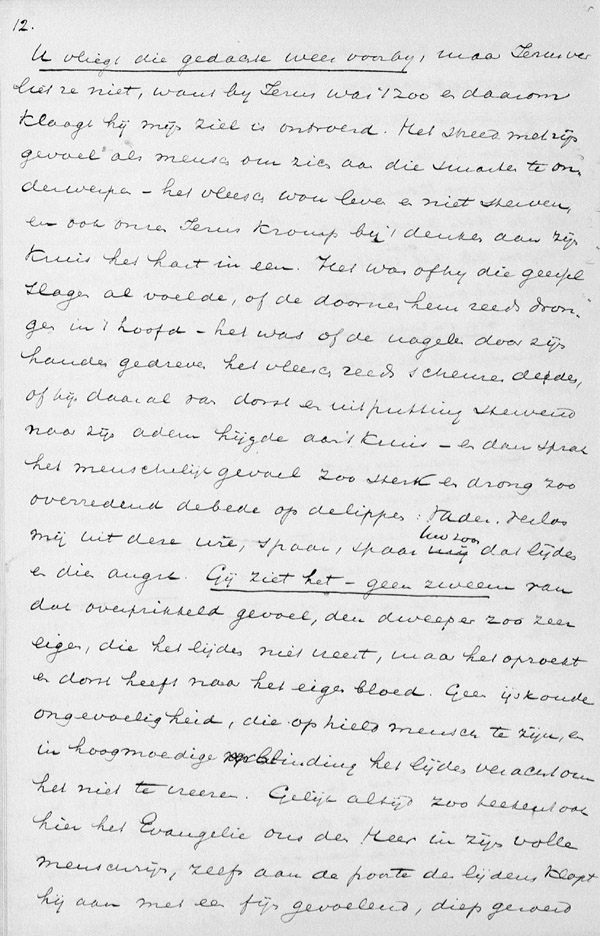 12.
U vliegt die gedachte weer voorby, maar Jezus ver
liet ze niet, want by Jezus was 't zoo en daarom
klaagt hij mijn ziel is ontroerd. Het streed met zijn
gevoel als mensch om zich aan die smarten te on
derwerpen – het vleesch wou leven en niet sterven,
en ook onzen Jezus kromp bij 't denken aan zijn
kruis het hart in een. Het was of hy die geesel
slagen al voelde, of de doornen hem reeds dron-
gen in 't hoofd – het was of de nagelen door zijn
handen gedreven het vleesch reeds scheuren deden,
of hij daar al van dorst en uitputting stervend
naar zijn adem hijgde aan 't kruis – en dan sprak
het menschelijk gevoel zoo sterk en drong zoo
overredend de bede op de lippen: Vader, verlos
mij uit deze ure, spaar, spaar Uw zoon dat lijden
en die angst. Gij ziet het – geen zweem van
dat overprikkeld gevoel, den dweeper zoo zeer
eigen, die het lijden niet vreest, maar het oproept
en dorst heeft naar het eigen bloed. Geen ijskoude
ongevoeligheid, die ophield mensch te zijn, en
in hoogmoedige verblinding het lijden veracht om
het niet te vreezen. Gelijk altijd zoo teekent ook
hier het Evangelie ons den Heer in zijn volle
menschzijn, zelfs aan de poorte des lijdens klopt
hij aan met een fijn gevoelend, diep geroerd